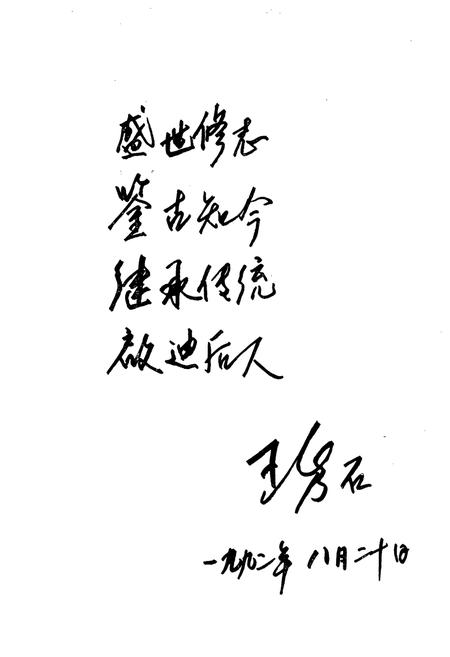 盛世修志
鉴古知今
继承传统
启迪后人
王石
一九九二年八月二十日